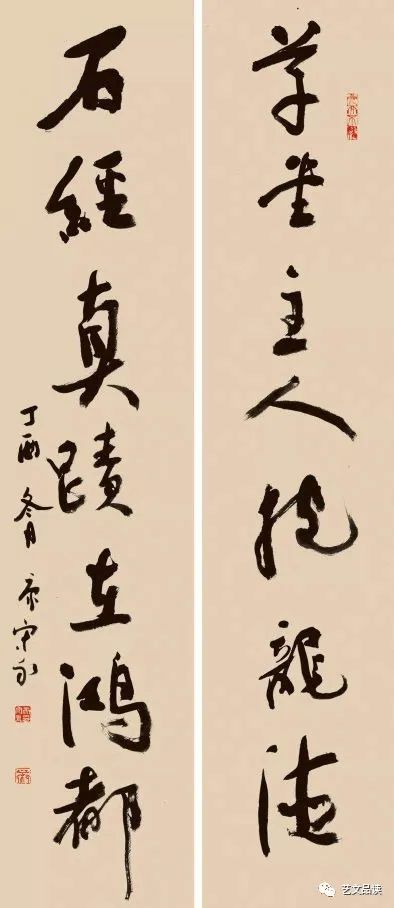 草堂主人抱龍德
石經真蹟在鴻都
丁酉冬月 康守永
艺文品读